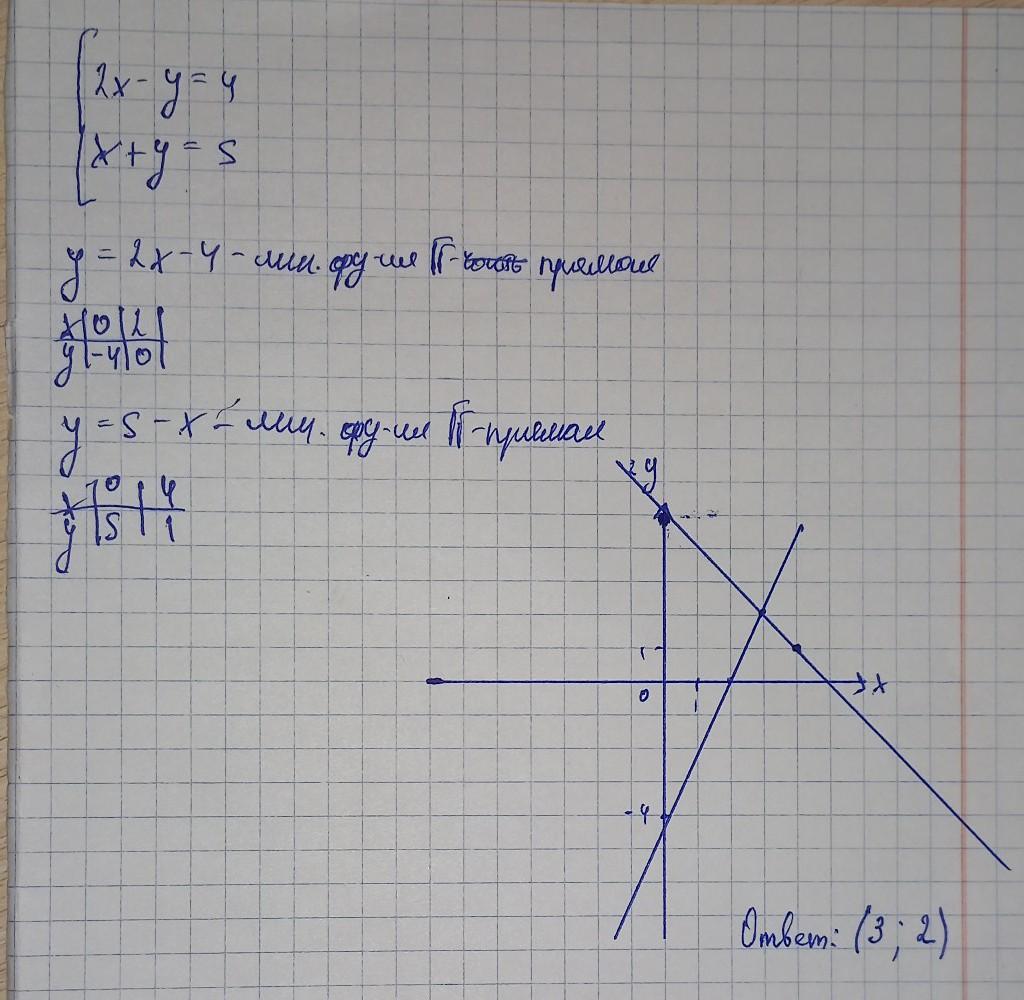 2x - y = 4
x + y = 5
y = 2x - 4 - лин. фу-ия Г- прямая
x | 0 | 2 |
y | -4 | 0 |
y = 5 - x - лин. фу-ия Г-прямая
x | 0 | 4
y | 5 | 1
y
1
0 1 x
-4
Ответ: (3; 2)